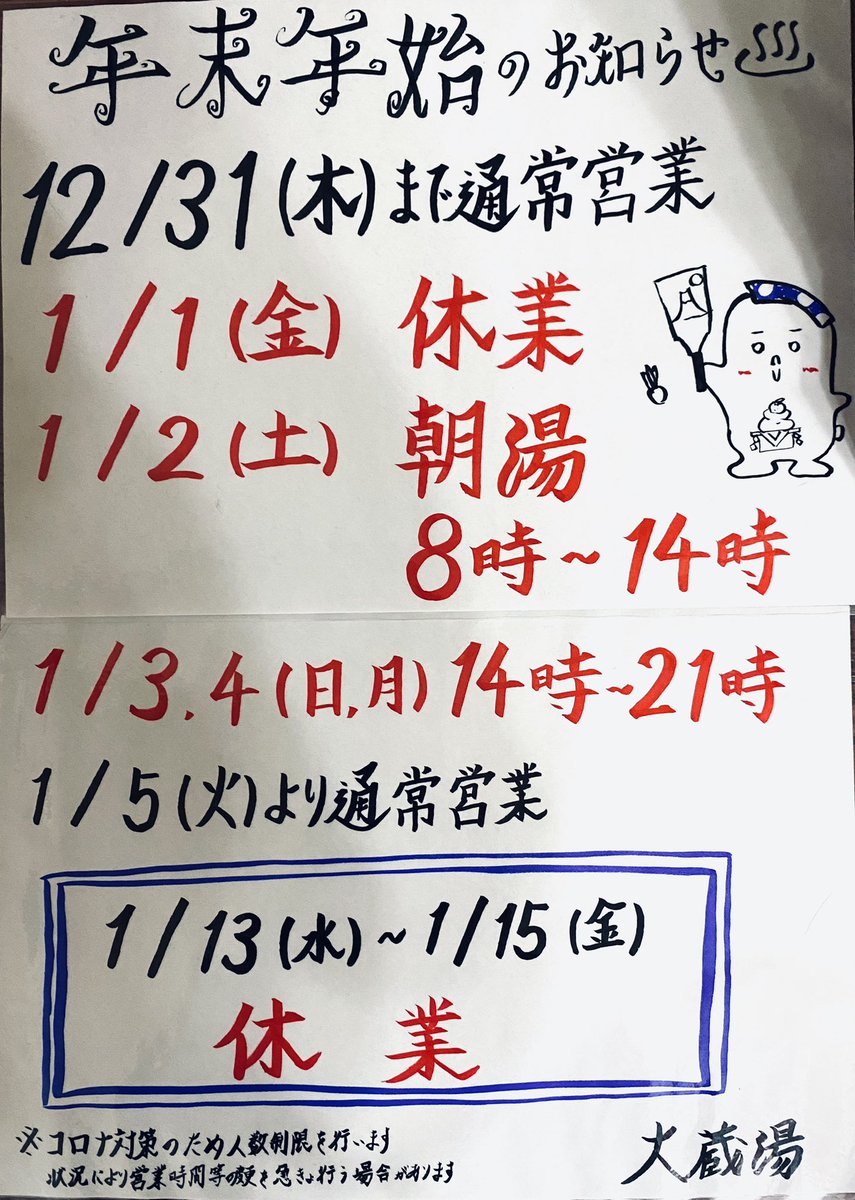 年末年始のお知らせ♨
12/31(木)まで通常営業
1/1(金) 休業
1/2(土) 朝湯
8時~14時
1/3.4(日,月)14時~21時
1/5(火)より通常営業
1/13(水)~1/15(金)
休業
※コロナ対策のため人数制限を行います
状況により営業時間等の変更を急きょ行う場合があります
大蔵湯